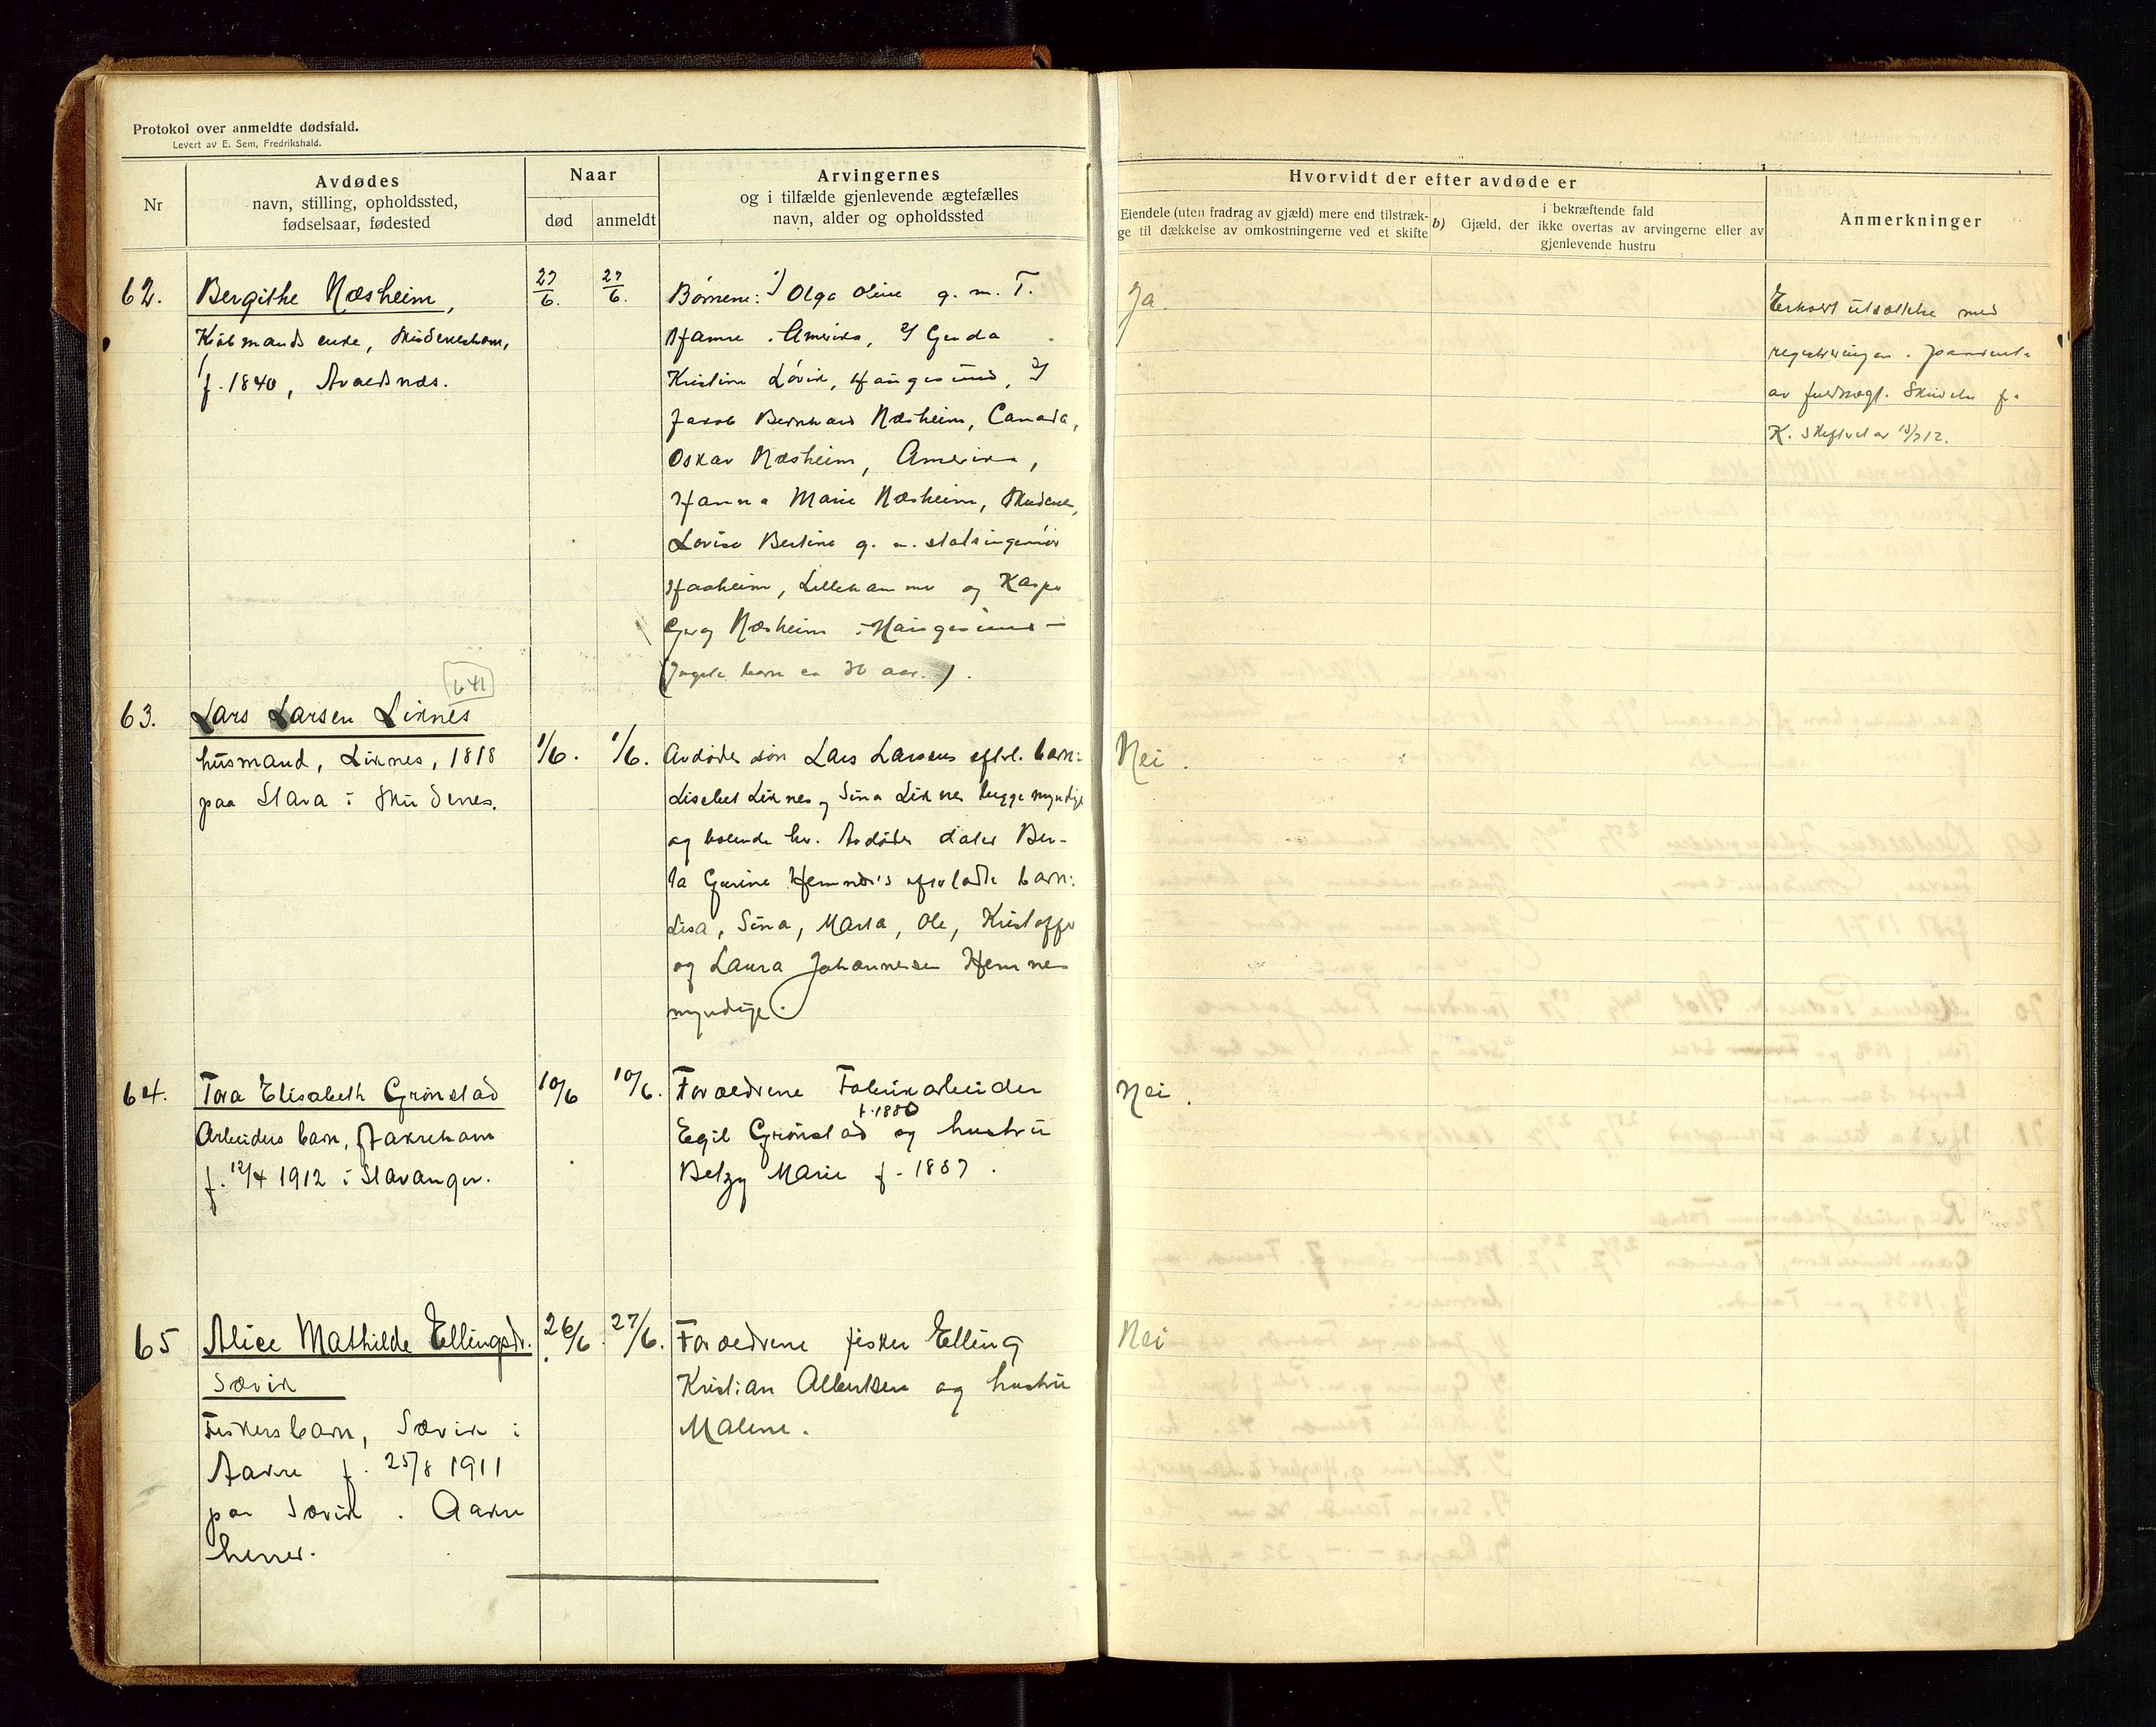 Protokol over anmeldte dødsfald.
Levert av E. Sem, Fredrikshald.
Nr
Avdødes
navn, stilling, opholdssted,
fødselsaar, fødested
Naar
død
anmeldt
Arvingernes
og i tilfælde gjenlevende ægtefælles
navn, alder og opholdssted
Hvorvidt der efter avdøde er
Eiendele (uten fradrag av gjæld) mere end tilstræk-
ge til dækkelse av omkostningerne ved et skifte
b) Gjæld, der i bekræftende fald
ikke overtas av arvingerne eller av
gjenlevende hustru
Anmerkninger
62.
Bergithe Næsheim,
Kjøbmands enke, Skudeneshavn,
f. 1840, Avaldsnæs.
27/6.
27/6.
Børnene: 1/ Olga Oline g. m. T.
Amerika, 2/ Gerda
Kristine Løvik, Haugesund, 3/
Jakob Bernhard Næsheim, Canada,
Oskar Næsheim, Amerika,
Hanna Marie Næsheim, Skudenes,
Lovise Bertine g. m. statsingeniør
Haaheim, Lillehammer og Kasper
Georg Næsheim i Haugesund -
(Yngste barn ca 30 aar.).
Ja.
utsættelse med
registreringen.
av fuldmægt.
K. 12.
63.
641
Lars Larsen Liknes
husmand, Liknes, 1818
paa Stava i Skudenes.
1/6.
1/6.
Avdødes søn Lars Larsens efterl. barn:
Lisebet Liknes og Sina Liknes begge myndige
og boende her. Avdødes dater Ber-
ta Gurine Hemnes's efterladte barn:
Lisa, Sina, Marta, Ole, Kristoffer
og Laura Johannesen Hemnes
myndige.
Nei.
64.
Tora Elisabeth Grønstad
Arbeiders barn, Aakrehavn
f. 12/4 1912 i Stavanger.
10/6
10/6.
Forældrene Fabrikarbeider
f. 1880
Egil Grønstad og hustru
Betzy Marie f. 1887.
Nei.
65
Alice Mathilde Ellingsdr.
Sævik
Fiskers barn, Sævik i
Aakre f. 25/8 1911
paa Sævik. Aakre
herred.
26/6.
27/6.
Forældrene fisker Elling
Kristian Albertsen og hustru
Malene.
Nei